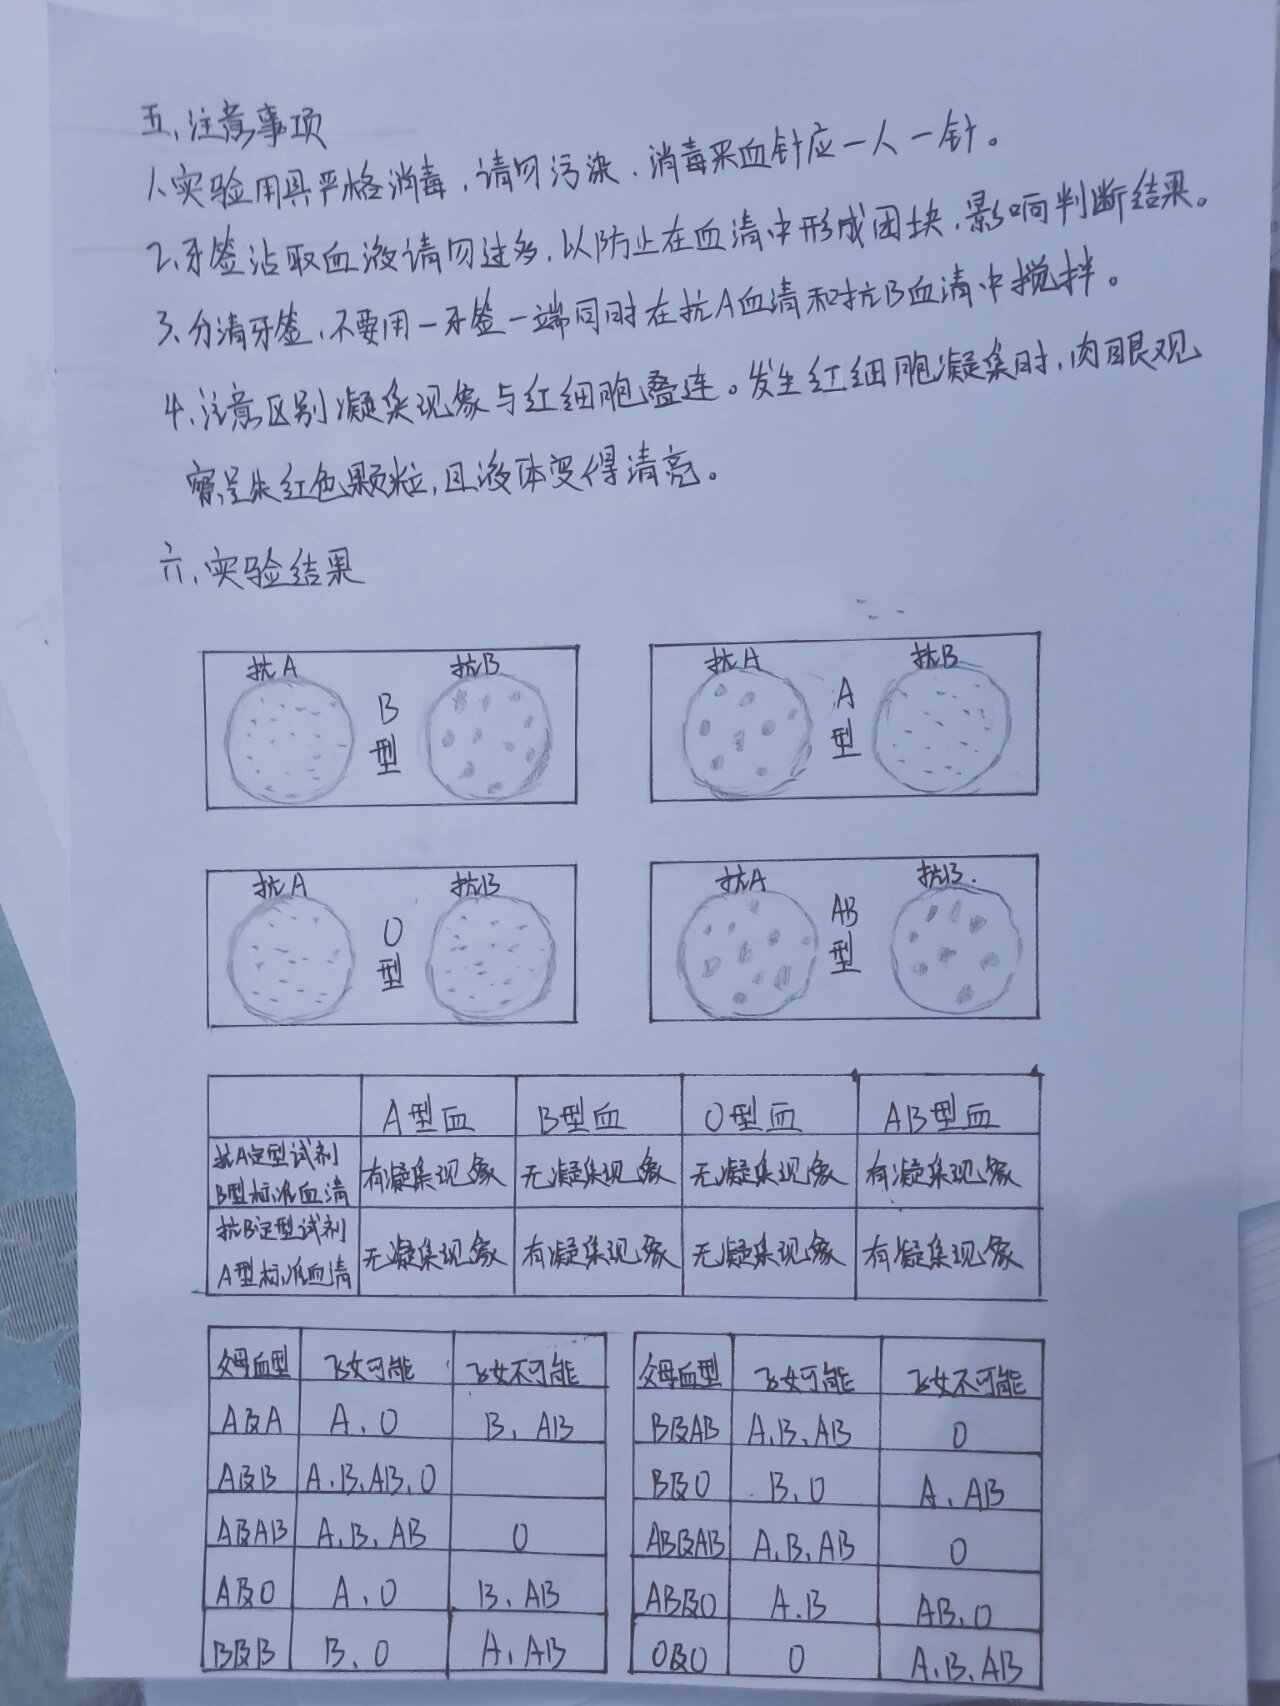 五、注意事项
1、实验用具严格消毒，请勿污染，消毒采血针应一人一针。
2、牙签沾取血液请勿过多，以防止在血清中形成团块，影响判断结果。
3、分清牙签，不要用一牙签一端同时在抗A血清和抗B血清中搅拌。
4、注意区别凝集现象与红细胞叠连。发生红细胞凝集时，肉眼观
察呈朱红色颗粒，且液体变得清亮。
六、实验结果
抗A B型 抗B
抗A A型 抗B
抗A O型 抗B
抗A AB型 抗B
A型血 B型血 O型血 AB型血
抗A定型试剂
B型标准血清 有凝集现象 无凝集现象 无凝集现象 有凝集现象
抗B定型试剂
A型标准血清 无凝集现象 有凝集现象 无凝集现象 有凝集现象
父母血型 子女可能 子女不可能
A及A A、O B、AB
A及B A、B、AB、O
A及AB A、B、AB O
A及O A、O B、AB
B及B B、O A、AB
父母血型 子女可能 子女不可能
B及AB A、B、AB O
B及O B、O A、AB
AB及AB A、B、AB O
AB及O A、B AB、O
O及O O A、B、AB